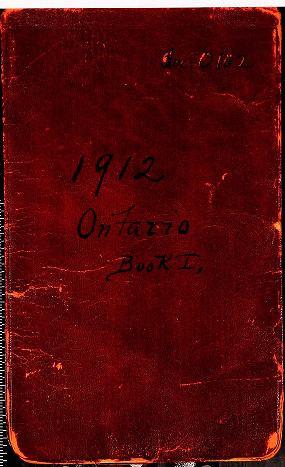 1912
Ontario
Book I.